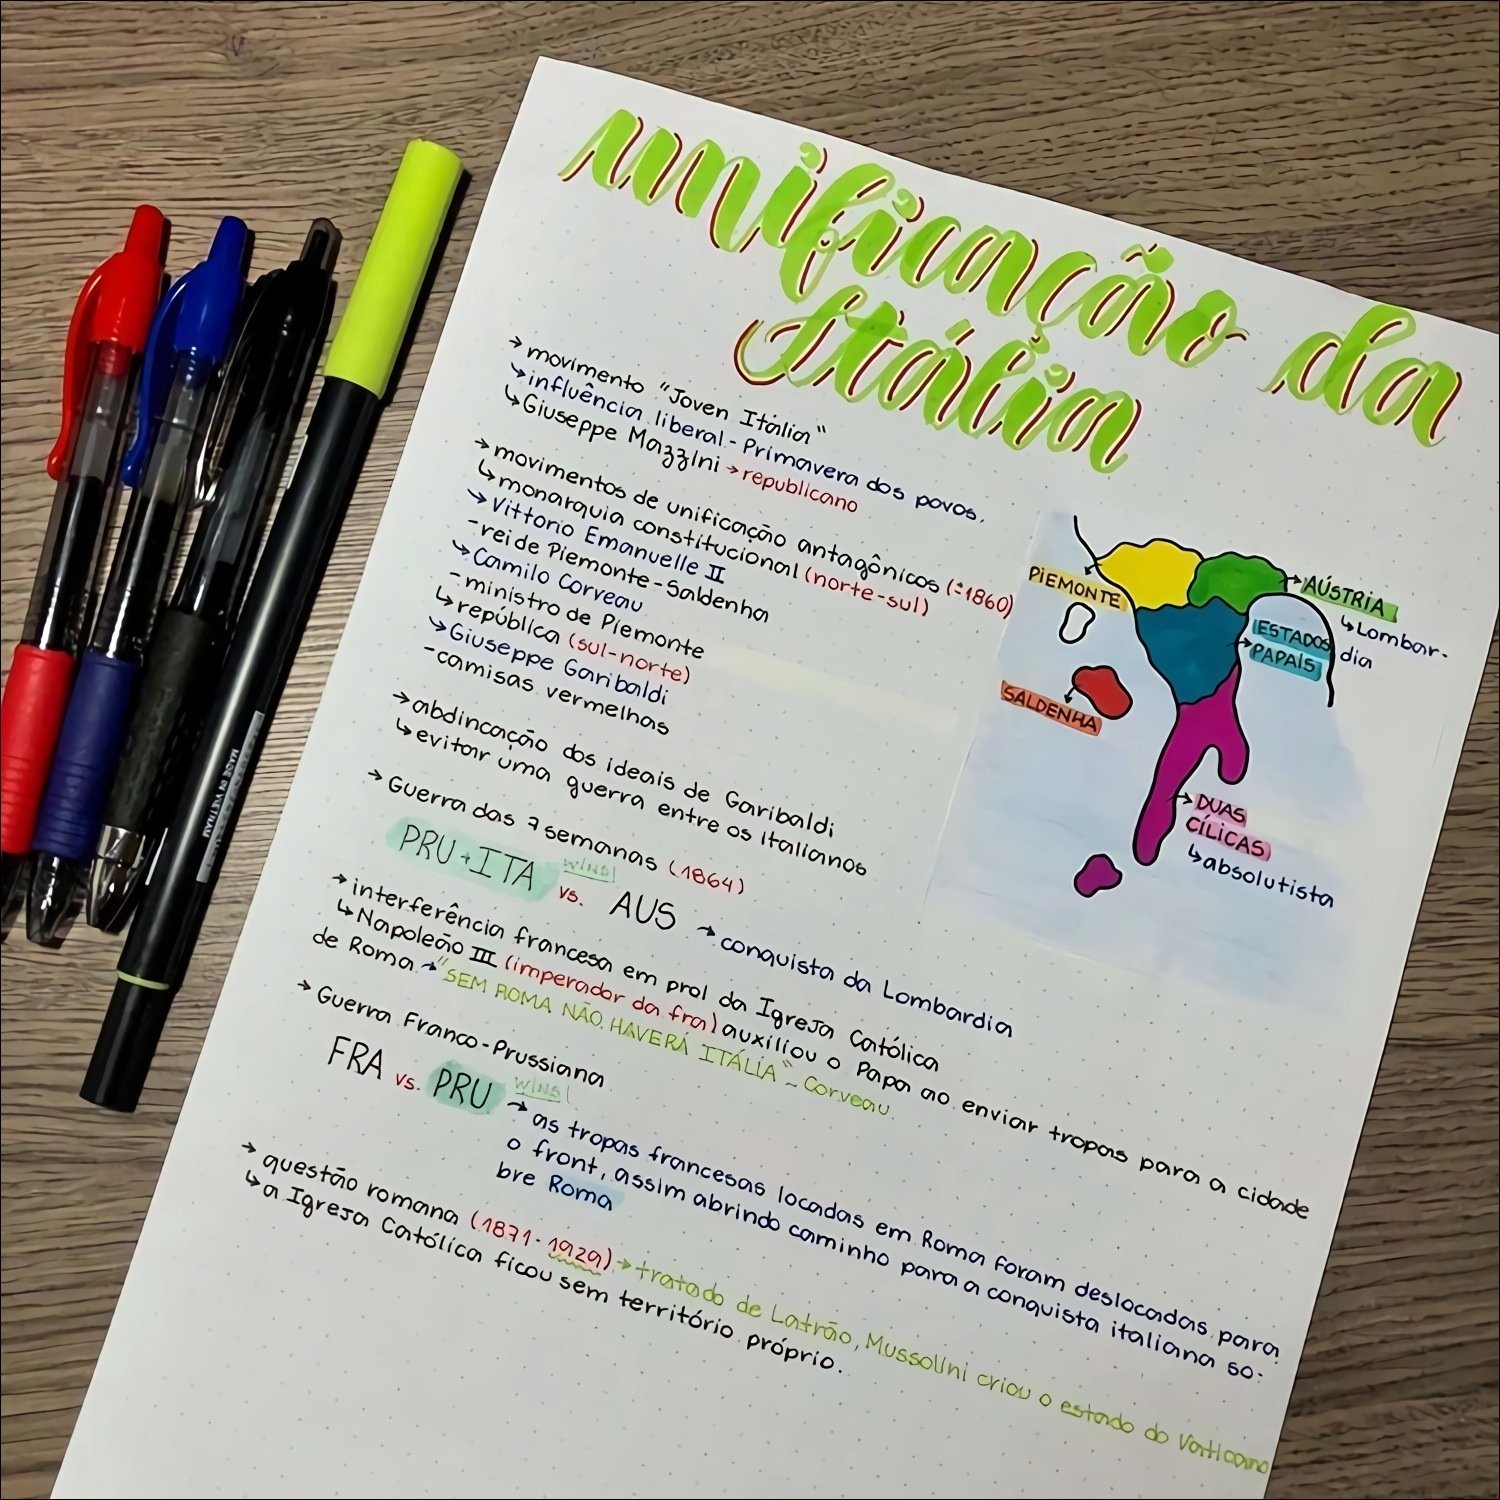 unificação da
Itália
→ movimento "Joven Itália"
↳ influência liberal - Primavera dos povos.
↳ Giuseppe Mazzini → republicano
→ movimentos de unificação antagônicos (÷1860)
↳ monarquia constitucional (norte-sul)
↳ Vittorio Emanuelle II
- rei de Piemonte-Saldenha
↳ Camilo Corveau
- ministro de Piemonte
↳ república (sul-norte)
↳ Giuseppe Garibaldi
- camisas vermelhas
→ abdincação dos ideais de Garibaldi
↳ evitar uma guerra entre os italianos
→ Guerra das 7 semanas (1864)
PRU + ITA wins! vs. AUS → conquista da Lombardia
→ interferência francesa em prol da Igreja Católica
↳ Napoleão III (imperador da fra) auxiliou o Papa ao enviar tropas para a cidade
de Roma → "SEM ROMA NÃO HAVERÁ ITÁLIA" ~ Corveau
→ Guerra Franco-Prussiana
FRA vs. PRU wins!
→ as tropas francesas locadas em Roma foram deslocadas para
o front, assim abrindo caminho para a conquista italiana so-
bre Roma
→ questão romana (1871-1929) → tratado de Latrão, Mussolini criou o estado do Vaticano
↳ a Igreja Católica ficou sem território próprio.
PIEMONTE
AÚSTRIA
↳ Lombar-
dia
ESTADOS
PAPAIS
SALDENHA
DUAS
CÍLICAS
↳ absolutista